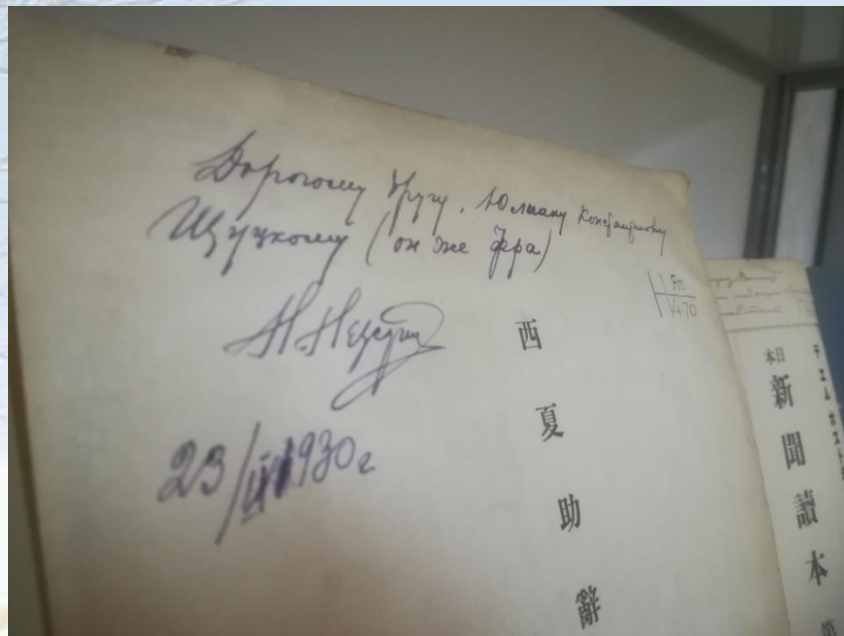 Дорогому другу, Юлиану Константиновичу
Щуцкому (он же фра)
Н. Невский
23/III 1930 г
Яп
1470
西夏助辭
日本
新聞讀本 第